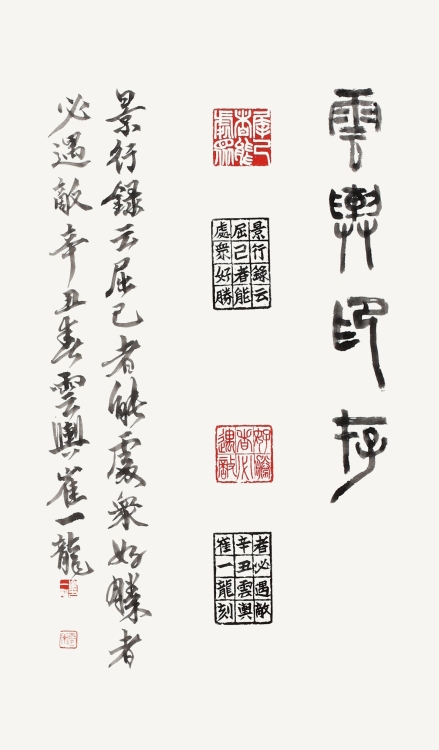 雲輿印存
屈己
者能
處衆
景行錄云
屈己者能
處衆好勝
好勝
者必
遇敵
者必遇敵
辛丑雲輿
崔一龍刻
景行錄云屈己者能處衆好勝者
必遇敵辛丑春雲輿崔一龍